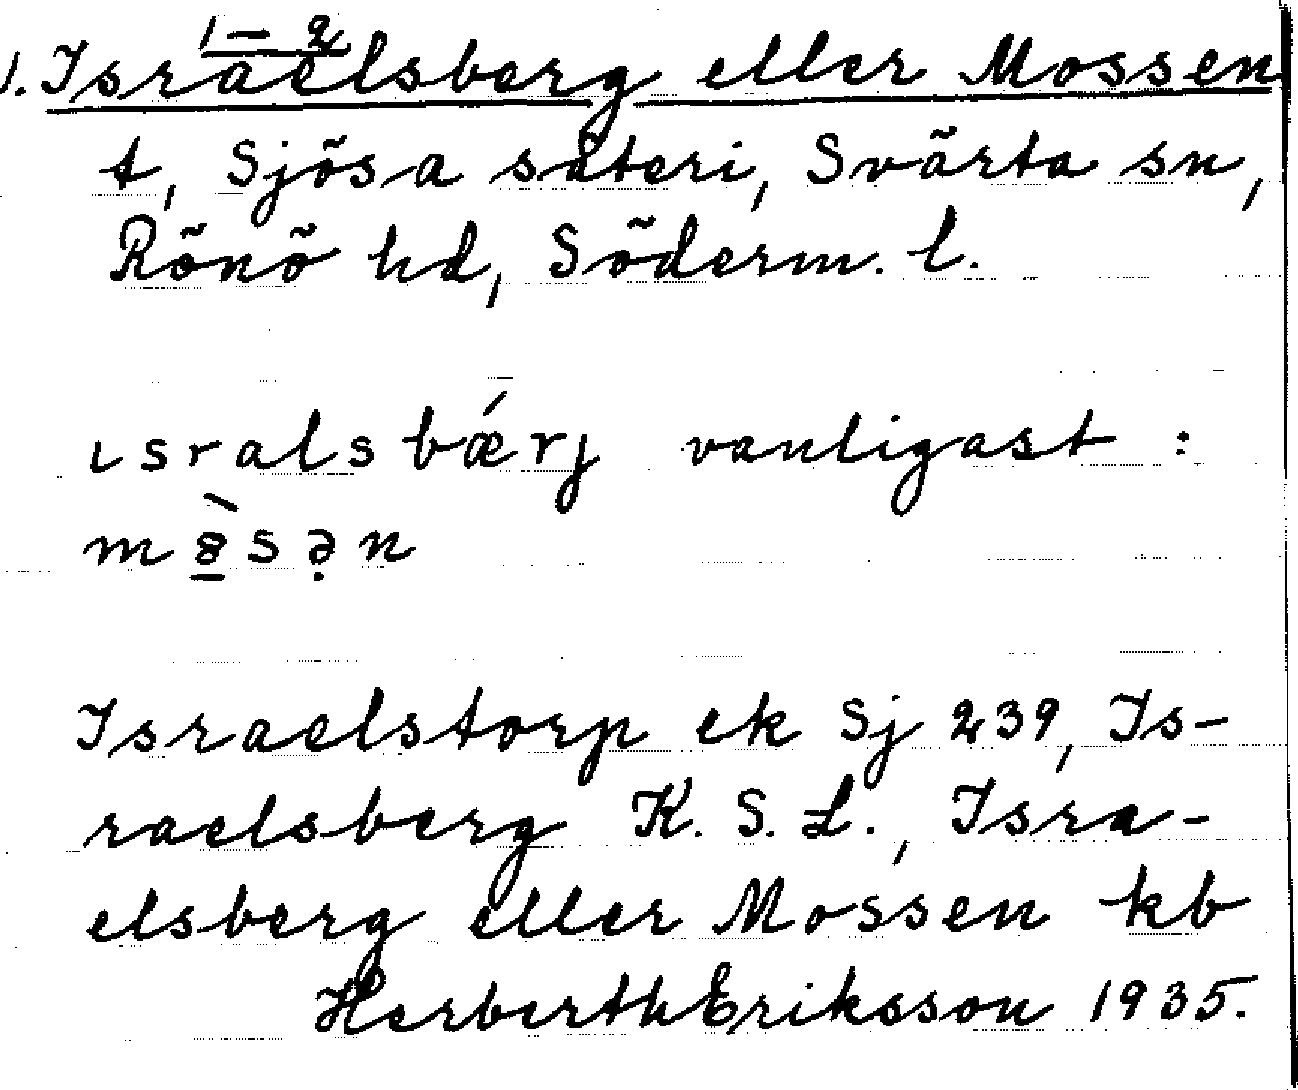 1-2
1. Israelsberg eller Mossen
t, Sjösa säteri, Svärta sn,
Rönö hd, Söderm. l.
ısralsbǽrj vanligast :
m s ə̣ n
Israelstorp ek Sj 239, Is-
raelsberg K. S. L., Isra-
elsberg eller Mossen kb
Herberth Eriksson 1935.